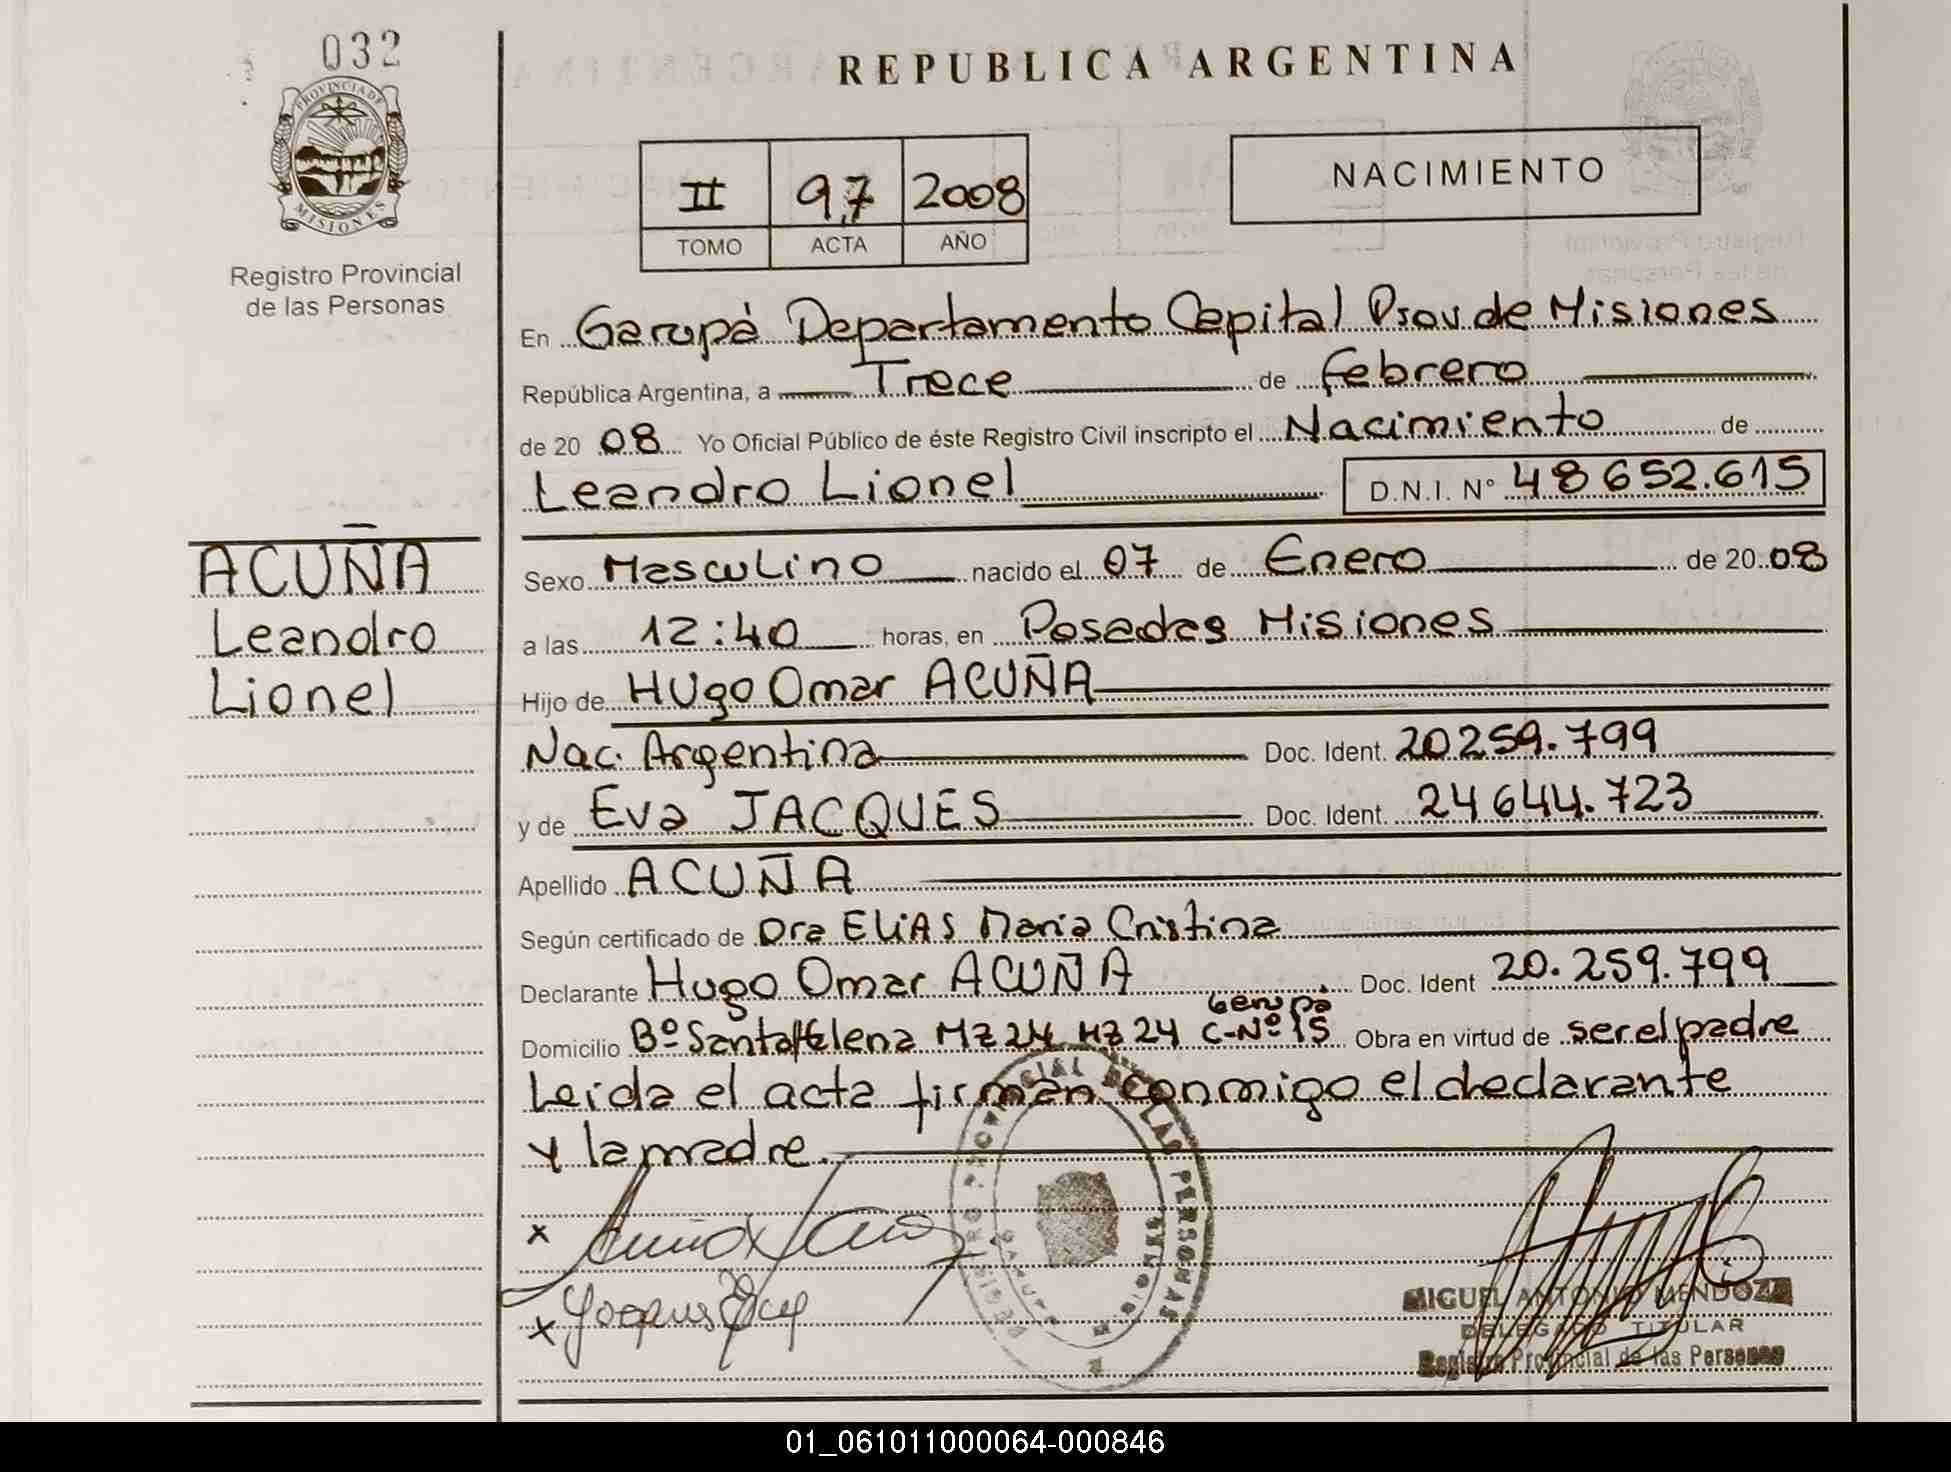 032
PROVINCIA DE
MISIONES
Registro Provincial
de las Personas
REPUBLICA ARGENTINA
II 97 2008
TOMO ACTA AÑO
NACIMIENTO
En Garupá Departamento Capital Prov de Misiones
República Argentina, a Trece de Febrero
de 20 08 Yo Oficial Público de éste Registro Civil inscripto el Nacimiento de
Leandro Lionel D.N.I. N° 48 652.615
ACUÑA
Leandro
Lionel
Sexo Masculino nacido el 07 de Enero de 20 08
a las 12:40 horas, en Posadas Misiones
Hijo de Hugo Omar ACUÑA
Nac. Argentina Doc. Ident. 20 259.799
y de Eva JACQUES Doc. Ident. 24 644.723
Apellido ACUÑA
Según certificado de Dra ELIAS Maria Cristina
Declarante Hugo Omar ACUÑA Doc. Ident 20.259.799
Garupá
Domicilio Bº Santa Elena Mz 24 Mz 24 C-Nº 15 Obra en virtud de ser el padre
Leida el acta firman conmigo el declarante
y la madre.
x
x
PROVINCIAL DE LAS PERSONAS
MIGUEL ANTONIO MENDOZA
DELEGADO TITULAR
Registro Provincial de las Personas
01_061011000064-000846